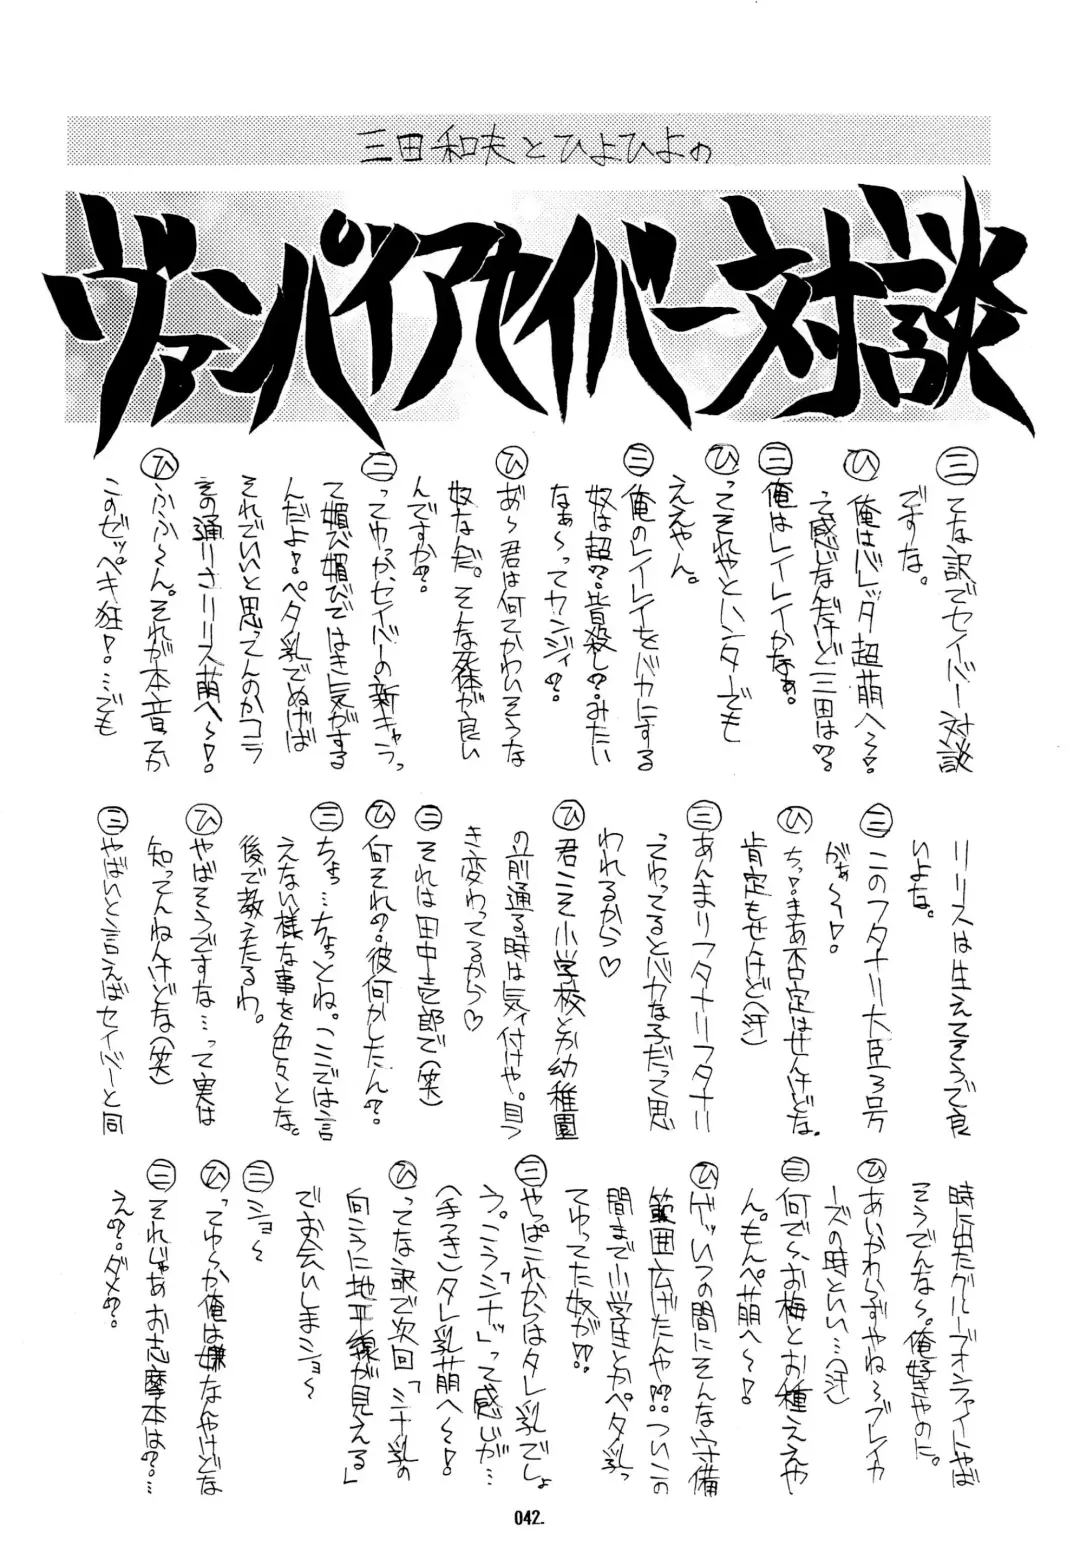 三田和夫とひよひよの
ヴァンパイアセイバー対談
三 てな訳でセイバー対談
ですな。
ひ 俺はバレッタ超萌へ〜!
って感じなんだけど三田は?
三 俺はレイレイかなぁ。
ひ ってそれやとハンターでも
ええやん。
三 俺のレイレイをバカにする
奴は超?皆殺し?みたい
なぁ〜ってカンジィ?
ひ あ〜君は何てかわいそうな
奴なんだ。そんな死体が良い
んですか?
三 ってゆっか、セイバーの新キャラっ
て媚び媚びではき気がする
んだよ!ペタ乳でぬげば
それでいいと思ってんのかコラ
その通りさリリス萌へ〜!
ひ ふふ〜ん。それが本音てか
このゼッペキ狂!…でも
リリスは生えてそうで良
いよな。
三 このフタナリ大臣3号
がぁ〜!
ひ ちっ!まあ否定はせんけどな。
肯定もせんけど(汗)
三 あんまりフタナリフタナリ
ってゆってるとバカな子だって思
われるから♡
ひ 君こそ小学校とか幼稚園
の前通る時は気ィ付けや。目つ
き変わってるから♡
三 それは田中壱郎で(笑)
ひ 何それ?彼何かしたん?
三 ちょっ…ちょっとね。ここでは言
えない様な事を色々とな。
後で教えたるわ。
ひ やばそうですな…って実は
知ってんねんけどな(笑)
三 やばいと言えばセイバーと同
時に出たグルーブオンファイトやば
そうでんな〜。俺好きやのに。
ひ あいかわらずやね〜ブレイカ
ーズの時といい…(汗)
三 何で〜、お梅とお種ええや
ん。もんペ萌へ〜!
ひ ゲッいつの間にそんな守備
範囲広げたんや!?ついこの
間まで小学生とかペタ乳っ
てゆってた奴が!?
三 やっぱこれからはタレ乳でしょ
う。こう「シナッ」って感じが…
(手つき)タレ乳萌へ〜!
ひ ってな訳で次回「シナ乳の
向こうに地平線が見える」
でお会いしまショ〜
三 ショ〜
ひ ってゆ〜か俺は嫌なんやけどな
三 それじゃあお志摩本は?…
え?ダメ?
042.